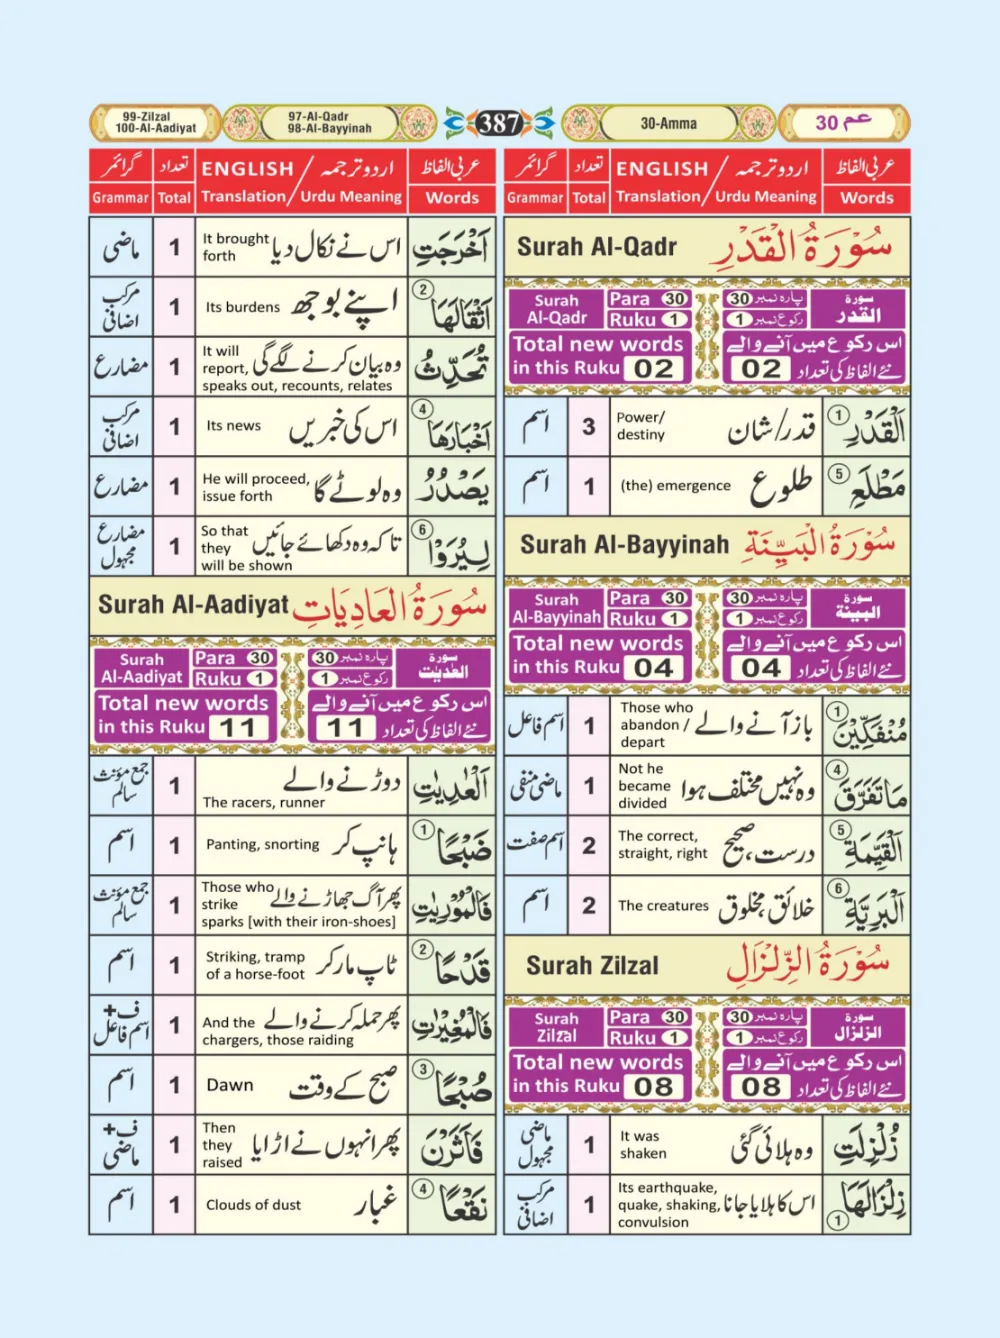 99-Zilzal
100-Al-Aadiyat
97-Al-Qadr
98-Al-Bayyinah
387
30-Amma
عم 30
عربی الفاظ
اردو ترجمہ / ENGLISH
تعداد
گرائمر
Words
Translation/ Urdu Meaning
Total
Grammar
Surah Al-Qadr سُوْرَةُ الْقَدْرِ
Surah
Al-Qadr
Para 30
Ruku 1
پارہ نمبر 30
رکوع نمبر 1
سورة
القدر
Total new words
in this Ruku 02
اس رکوع میں آنے والے
نئے الفاظ کی تعداد 02
اَلْقَدْرِ ①
قدر/شان
Power/
destiny
3
اسم
مَطْلَعِ ⑤
طلوع
(the) emergence
1
اسم
Surah Al-Bayyinah سُوْرَةُ الْبَيِّنَةِ
Surah
Al-Bayyinah
Para 30
Ruku 1
پارہ نمبر 30
رکوع نمبر 1
سورة
البینة
Total new words
in this Ruku 04
اس رکوع میں آنے والے
نئے الفاظ کی تعداد 04
مُنْفَكِّيْنَ ①
باز آنے والے
Those who
abandon /
depart
1
اسم فاعل
مَاتَفَرَّقَ ④
وہ نہیں مختلف ہوا
Not he
became
divided
1
ماضی منفی
اَلْقَيِّمَةِ ⑤
درست، صحیح
The correct,
straight, right
2
اسم صفت
اَلْبَرِيَّةِ ⑥
خلائق، مخلوق
The creatures
2
اسم
Surah Zilzal سُوْرَةُ الزِّلْزَالِ
Surah
Zilzal
Para 30
Ruku 1
پارہ نمبر 30
رکوع نمبر 1
سورة
الزلزال
Total new words
in this Ruku 08
اس رکوع میں آنے والے
نئے الفاظ کی تعداد 08
زُلْزِلَتِ
وہ ہلائی گئی
It was
shaken
1
ماضی
مجہول
زِلْزَالَهَا ①
اس کا ہلایا جانا
Its earthquake,
quake, shaking,
convulsion
1
مرکب
اضافی
عربی الفاظ
اردو ترجمہ / ENGLISH
تعداد
گرائمر
Words
Translation/ Urdu Meaning
Total
Grammar
اَخْرَجَتِ
اس نے نکال دیا
It brought
forth
1
ماضی
اَثْقَالَهَا ②
اپنے بوجھ
Its burdens
1
مرکب
اضافی
تُحَدِّثُ
وہ بیان کرنے لگے گی
It will
report,
speaks out, recounts, relates
1
مضارع
اَخْبَارَهَا ④
اس کی خبریں
Its news
1
مرکب
اضافی
يَصْدُرُ
وہ لوٹے گا
He will proceed,
issue forth
1
مضارع
لِيُرَوْا ⑥
تاکہ وہ دکھائے جائیں
So that
they
will be shown
1
مضارع
مجہول
Surah Al-Aadiyat سُوْرَةُ الْعَادِيَاتِ
Surah
Al-Aadiyat
Para 30
Ruku 1
پارہ نمبر 30
رکوع نمبر 1
سورة
العديت
Total new words
in this Ruku 11
اس رکوع میں آنے والے
نئے الفاظ کی تعداد 11
اَلْعٰدِيٰتِ
دوڑنے والے
The racers, runner
1
جمع مؤنث
سالم
ضَبْحًا ①
ہانپ کر
Panting, snorting
1
اسم
فَالْمُوْرِيٰتِ
پھر آگ جھاڑنے والے
Those who
strike
sparks [with their iron-shoes]
1
جمع مؤنث
سالم
قَدْحًا ②
ٹاپ مار کر
Striking, tramp
of a horse-foot
1
اسم
فَالْمُغِيْرٰتِ
پھر حملہ کرنے والے
And the
chargers, those raiding
1
ف+
اسم فاعل
صُبْحًا ③
صبح کے وقت
Dawn
1
اسم
فَاَثَرْنَ
پھر انہوں نے اڑایا
Then
they
raised
1
ف+
ماضی
نَقْعًا ④
غبار
Clouds of dust
1
اسم